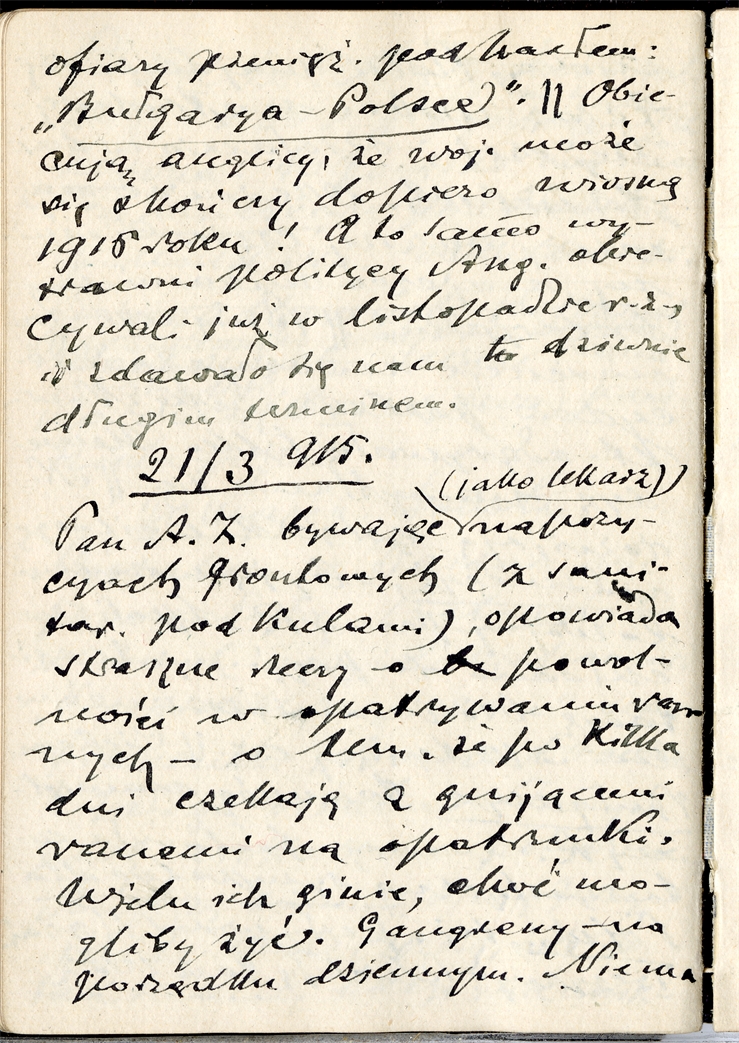 ofiary pienięż. pod hasłem:
„Bułgarya – Polsce”. || Obie-
cują anglicy, że woj. może
się skończy dopiero wiosną
1916 roku! A to samo wy-
trawni politycy Ang. obie-
cywali już w listopadzie r. z.,
i zdawało się nam to dziwnie
długim terminem.
21/3 915.
(jako lekarz)
Pan A. Z. bywając na pozy-
cyach frontowych (z sani-
tar. pod kulami), opowiada
straszne rzeczy o powol-
ności w opatrywaniu ran-
nych – o tem, że po kilka
dni czekają z gnijącemi
ranami na opatrunki.
Wielu ich ginie, choć mo-
gliby żyć. Gangreny – na
porządku dziennym. Niema